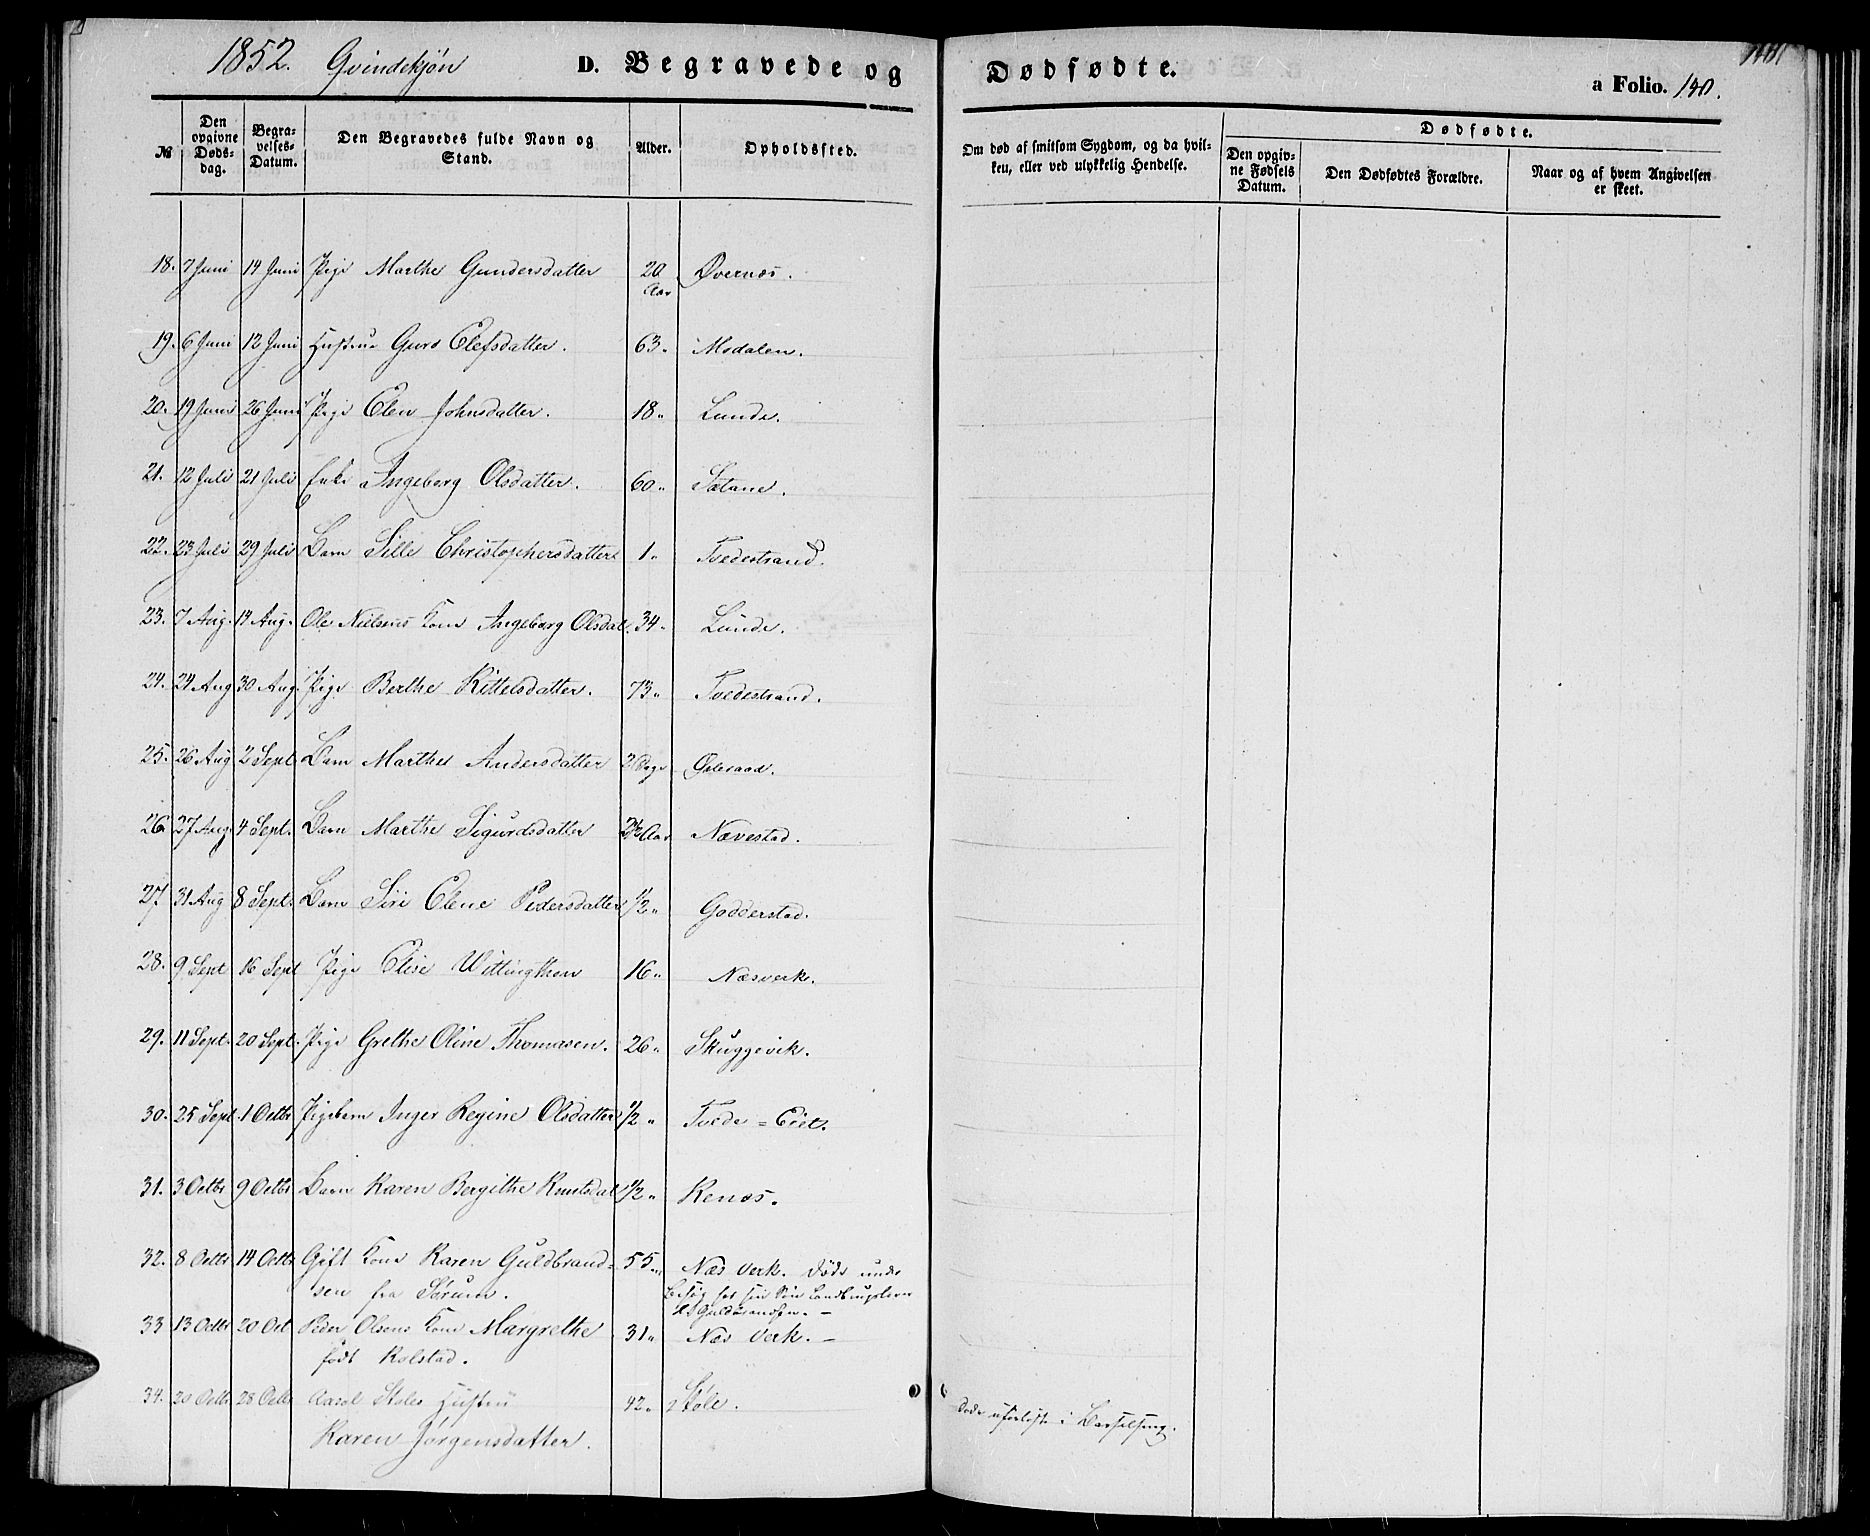 1852. Qvindekjøn D. Begravede og Dødfødte. a Folio. 140.
№
Den opgivne Døds-dag.
Begra-velses-Datum.
Den Begravedes fulde Navn og Stand.
Alder.
Opholdssted.
Om død af smitsom Sygdom, og da hvil-ken, eller ved ulykkelig Hendelse.
Dødfødte.
Den opgiv-ne Fødsels Datum.
Den Dødfødtes Forældre.
Naar og af hvem Angivelsen er skeet.
18. 7 Juni 14 Juni Pige Marthe Gundersdatter 20 Aar Øvernæs.
19. 6 Juni 12 Juni Hustrue Guro Olefsdatter. 63 " Modalen.
20. 19 Juni 26 Juni Pige Elen Johnsdatter. 18 " Lunde.
21. 12 Juli 21 Juli Enke Ingeborg Olsdatter. 60 " Satane.
22. 23 Juli 29 Juli Barn Sille Christophersdatter 1 " Tvedestrand.
23. 7 Aug. 14 Aug. Ole Nielsens Kone Ingeborg Olsdat. 34 " Lunde.
24. 24 Aug 30 Aug. Pige Berthe Kittelsdatter. 73 " Tvedestrand.
25. 26 Aug 2 Sept. Barn Marthe Andersdatter 2 Dage
26. 27 Aug. 4 Sept. Barn Marthe Sigurdsdatter Aar Nævestad.
27 31 Aug 8 Sept. Barn Siri Elene Pedersdatter 1/2 " Godderstad.
28. 9 Sept 16 Sept Pige Elise Wittingthon 16 " Næsverk.
29. 11 Sept. 20 Sept. Pige Grethe Oline Thomasen. 26 " Skuggevik.
30. 25 Sept. 1 Octbr Pigebarn Inger Regine Olsdatter 1/2 " Tvede = Eiet.
31. 3 Octbr 9 Octbr Barn Karen Bergithe Knutsdat 1/2 " Renæs.
32. 8 Octbr 14 Octbr Gift Kone Karen Guldbrand= 55 " Næs Verk. døde under
sen fra Sørum. Besøg hos sin Søn
Guldbrandsen. —
33 13 Octbr 20 Oct Peder Olsens Kone Margrethe 31 " Næs Verk. —
født Rolstad.
34. 20 Octbr 28 Octbr Aasol Støles Hustru 42 " Støle. døde uforløst i Barselseng.
Karen Jørgensdatter.